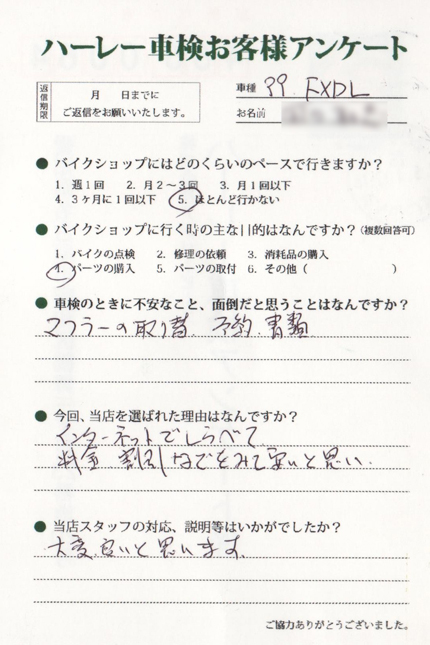 ハーレー車検お客様アンケート
返信期限
月　　日までに
ご返信をお願いいたします。
車種 99 FXDL
お名前
● バイクショップにはどのくらいのペースで行きますか？
1. 週1回　2. 月2～3回　3. 月1回以下
4. 3ヶ月に1回以下　5. ほとんど行かない
● バイクショップに行く時の主な目的はなんですか？(複数回答可)
1. バイクの点検　2. 修理の依頼　3. 消耗品の購入
4. パーツの購入　5. パーツの取付　6. その他（　　　　　）
● 車検のときに不安なこと、面倒だと思うことはなんですか？
マフラーの取り替 予約 書類
● 今回、当店を選ばれた理由はなんですか？
インターネットでしらべて
料金 割引などをみて安いと思い.
● 当店スタッフの対応、説明等はいかがでしたか？
大変良いと思います.
ご協力ありがとうございました。